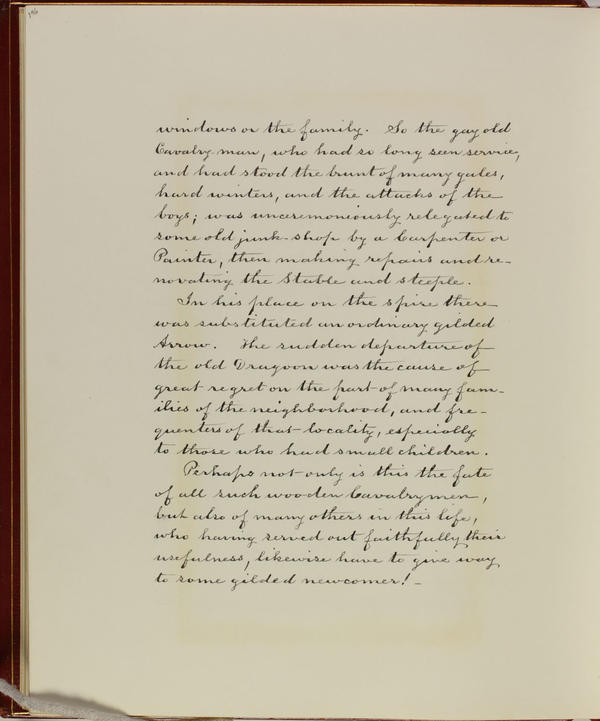 196
windows or the family. So the gay old
Cavalry man, who had so long seen service,
and had stood the brunt of many gales,
hard winters, and the attacks of the
boys; was unceremoniously relegated to
some old junk-shop by a Carpenter or
Painter, then making repairs and re-
novating the Stable and steeple.
In his place on the spire there
was substituted an ordinary gilded
Arrow. The sudden departure of
the old Dragoon was the cause of
great regret on the part of many fam-
ilies of the neighborhood, and fre-
quenters of that locality, especially
to those who had small children.
Perhaps not only is this the fate
of all such wooden Cavalrymen,
but also of many others in this life,
who having served out faithfully their
usefulness, likewise have to give way
to some gilded newcomer! -